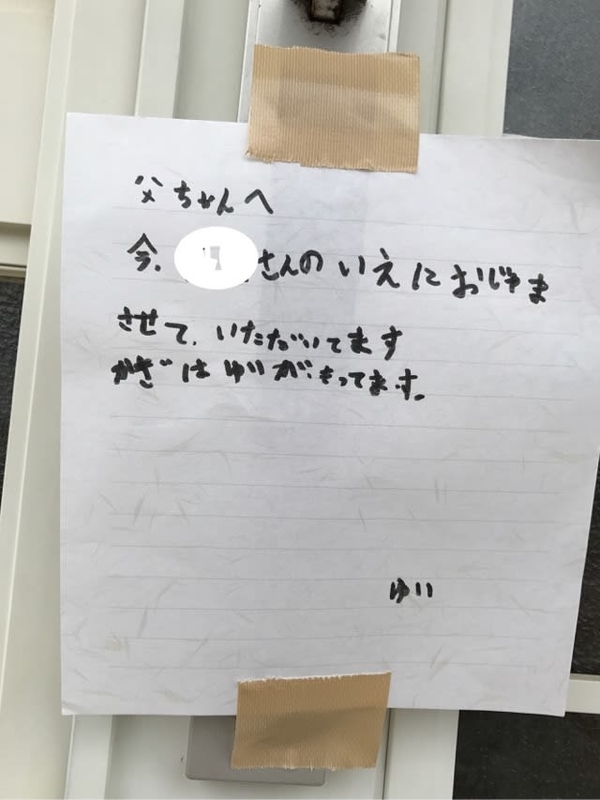 父ちゃんへ
今、さんのいえにおじゃま
させて、いただいてます
かぎはゆいがもってます。
ゆい